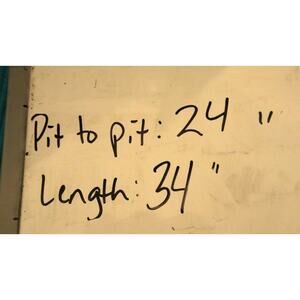 Pit to pit: 24 "
Length: 34 "